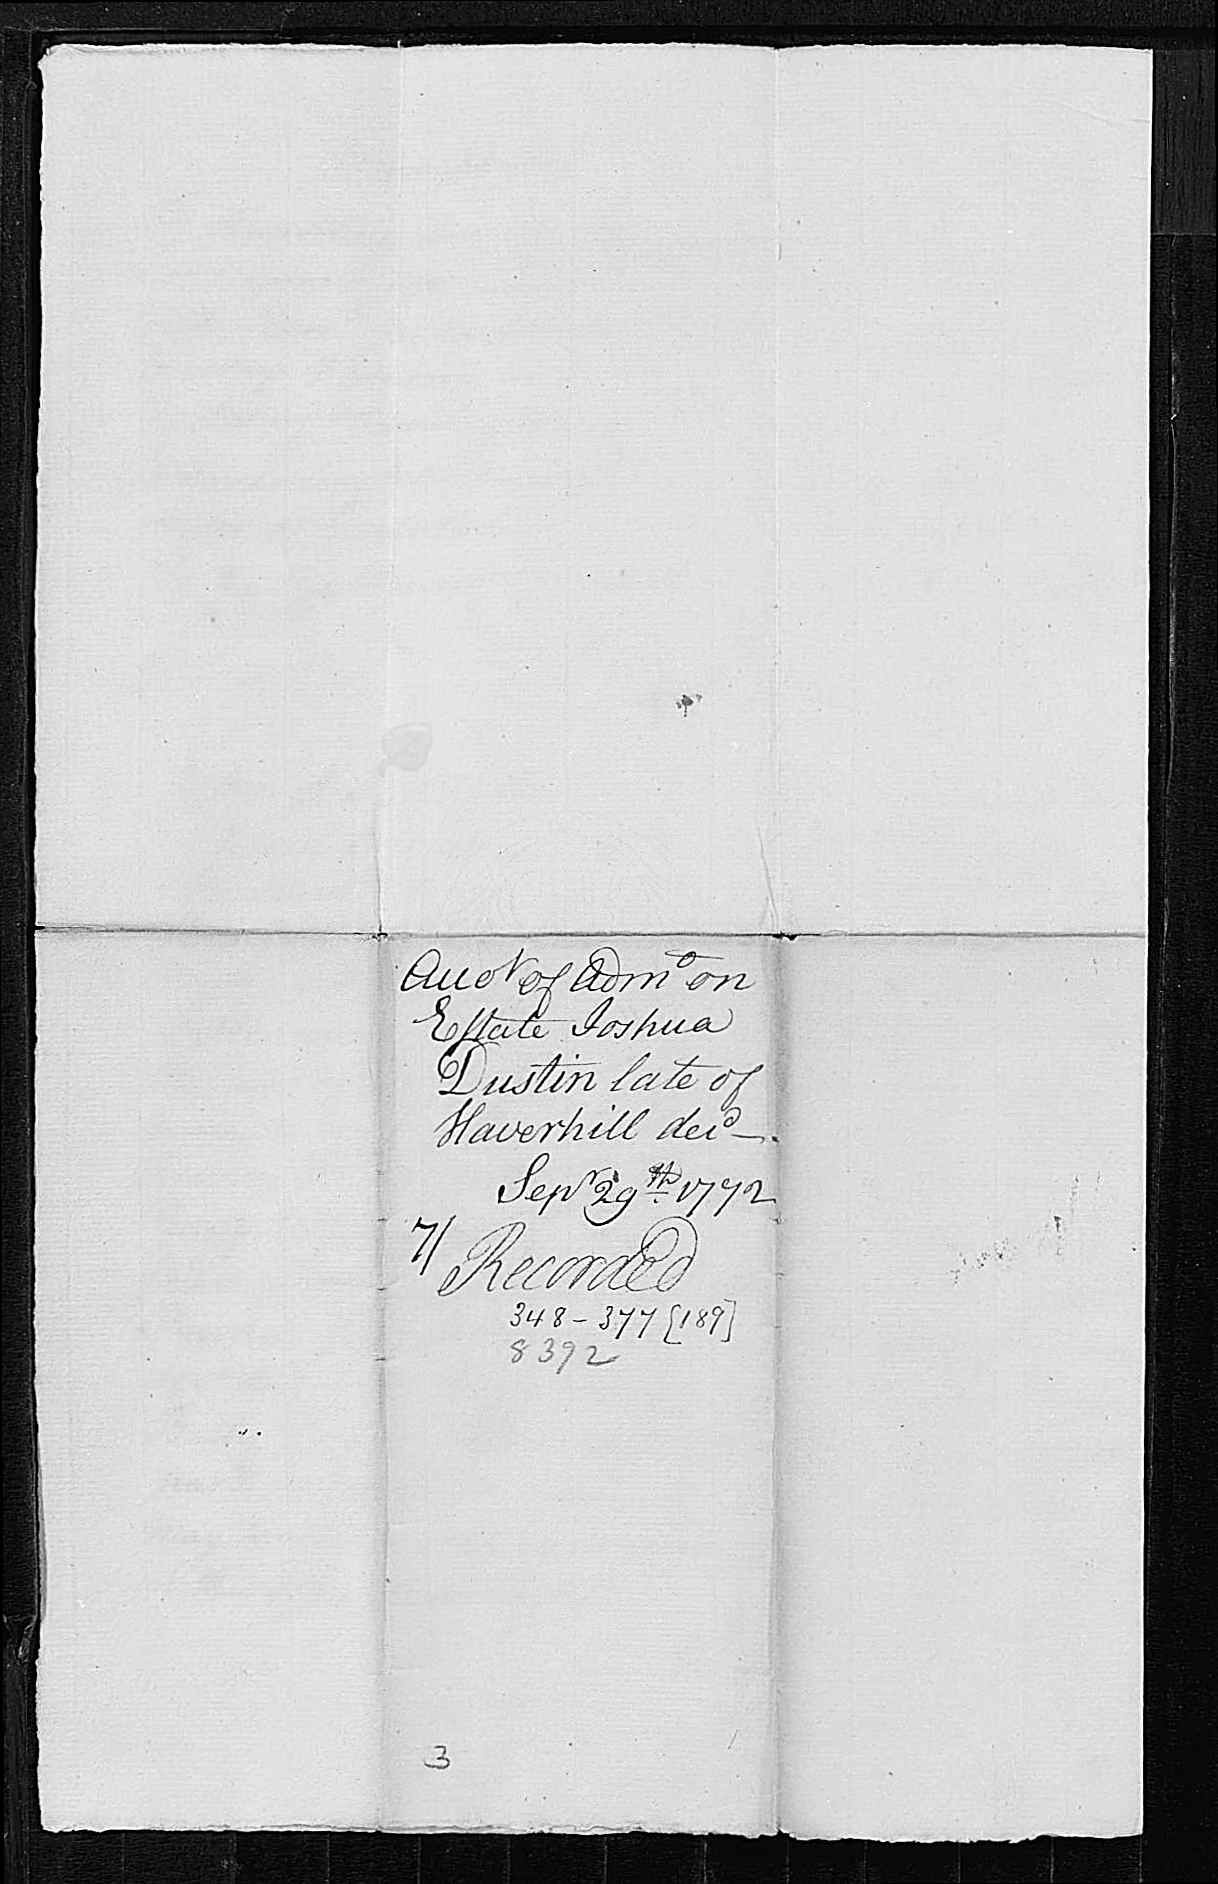 Accot of Admo on
Estate Joshua
Dustin late of
Haverhill decd —.
Sepr 29th 1772
7/
Recorded
348 - 377 [189]
8392
3